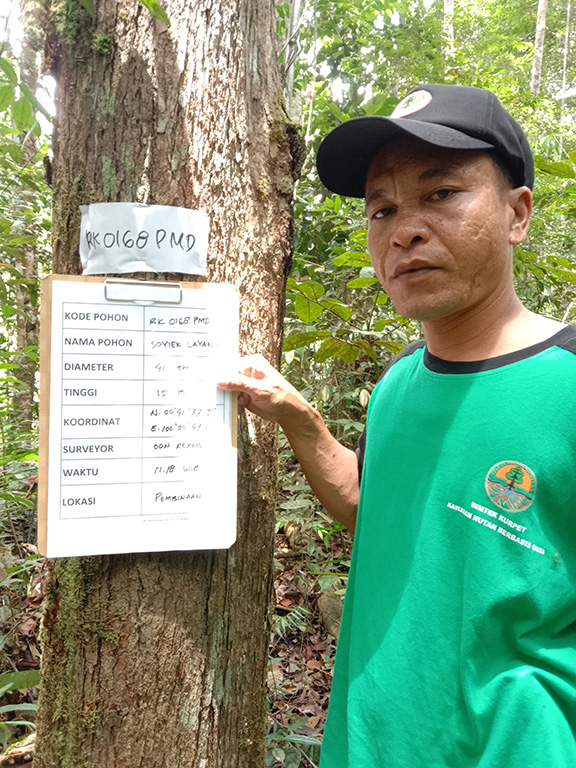 RK 0168 PMD
KODE POHON RK 0168 PMD
NAMA POHON LAYANG
DIAMETER 41 cm
TINGGI 15 M
KOORDINAT N. 00° 41' 37
E. 100° 00'
SURVEYOR DON
WAKTU 11.18 WIB
LOKASI PEMBINAAN
BIMTEK KURPET
KAWASAN HUTAN BERBASIS